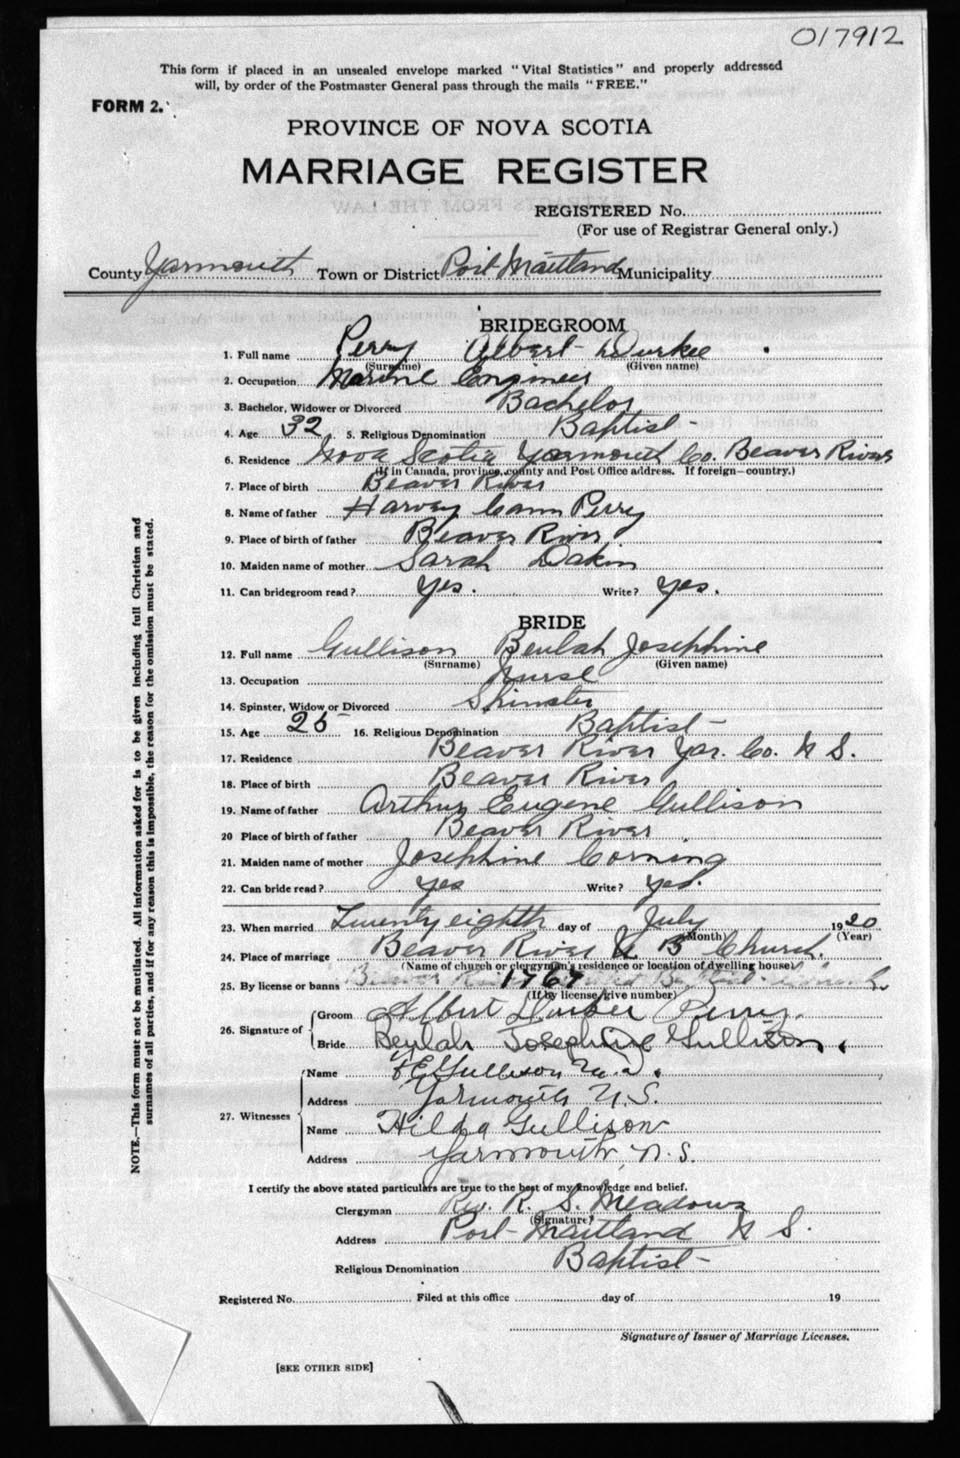 017912
This form if placed in an unsealed envelope marked "Vital Statistics" and properly addressed
will, by order of the Postmaster General pass through the mails "FREE."
FORM 2.
PROVINCE OF NOVA SCOTIA
MARRIAGE REGISTER
REGISTERED No.
(For use of Registrar General only.)
County Yarmouth Town or District Port Maitland Municipality
BRIDEGROOM
1. Full name Perry Albert Durkee
(Surname) (Given name)
2. Occupation Marine Engineer
3. Bachelor, Widower or Divorced Bachelor
4. Age 32 5. Religious Denomination Baptist
6. Residence Nova Scotia Yarmouth Co. Beaver River
(If in Canada, province, county and Post Office address. If foreign—country.)
7. Place of birth Beaver River
8. Name of father Harvey Cann Perry
9. Place of birth of father Beaver River
10. Maiden name of mother Sarah Dakin
11. Can bridegroom read? Yes. Write? Yes.
BRIDE
12. Full name Gullison Beulah Josephine
(Surname) (Given name)
13. Occupation Nurse
14. Spinster, Widow or Divorced Spinster
15. Age 25 16. Religious Denomination Baptist
17. Residence Beaver River Yar. Co. N S.
18. Place of birth Beaver River
19. Name of father Arthur Eugene Gullison
20 Place of birth of father Beaver River
21. Maiden name of mother Josephine Corning
22. Can bride read? Yes Write? Yes.
23. When married Twenty eighth day of July 1920
(Month) (Year)
24. Place of marriage Beaver River U B Church.
(Name of church or clergyman's residence or location of dwelling house)
25. By license or banns 1767
(If by license, give number)
26. Signature of
Groom Albert Durkee Perry.
Bride Beulah Josephine Gullison.
27. Witnesses
Name Gullison M.D.
Address Yarmouth N.S.
Name Hilda Gullison
Address Yarmouth, N.S.
I certify the above stated particulars are true to the best of my knowledge and belief.
Clergyman Rev. R. S. Meadows
(Signature)
Address Port Maitland N S.
Religious Denomination Baptist
Registered No. Filed at this office day of 19
Signature of Issuer of Marriage Licenses.
[SEE OTHER SIDE]
NOTE.—This form must not be mutilated. All information asked for is to be given including full Christian and
surnames of all parties, and if for any reason this is impossible, the reason for the omission must be stated.